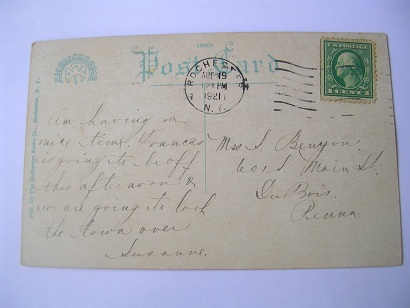 Post Card
ROCHESTER
AUG 19
12 PM
1921
N. Y.
U.S. POSTAGE
1 CENT 1
Am having a
nice time. Frances
is going to be off
this afternoon &
we are going to look
the town over
Susanne.
Miss S. Benyon
60 S. Main St.
DuBois.
Penna.